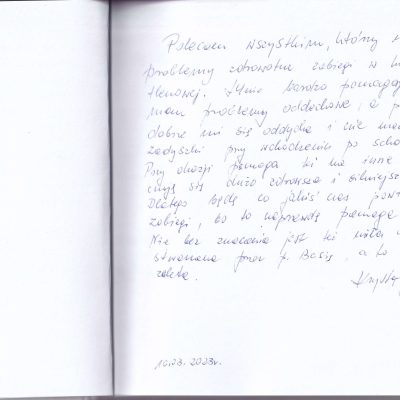 Polecam wszystkim, którzy
problemy zdrowotne zabiegi w
tlenowej. Mnie bardzo pomagają
mam problemy oddechowe, a
dobrze mi się oddycha i nie
zadyszki przy wchodzeniu po
Przy okazji pomaga też na inne
są dużo zdrowsze i silniejsze
Dlatego będę co jakiś czas
zabiegi, bo to naprawdę pomaga
Nie bez znaczenia jest też miła
stwarzana przez p. Basię, a to
zaleta.
2023r.